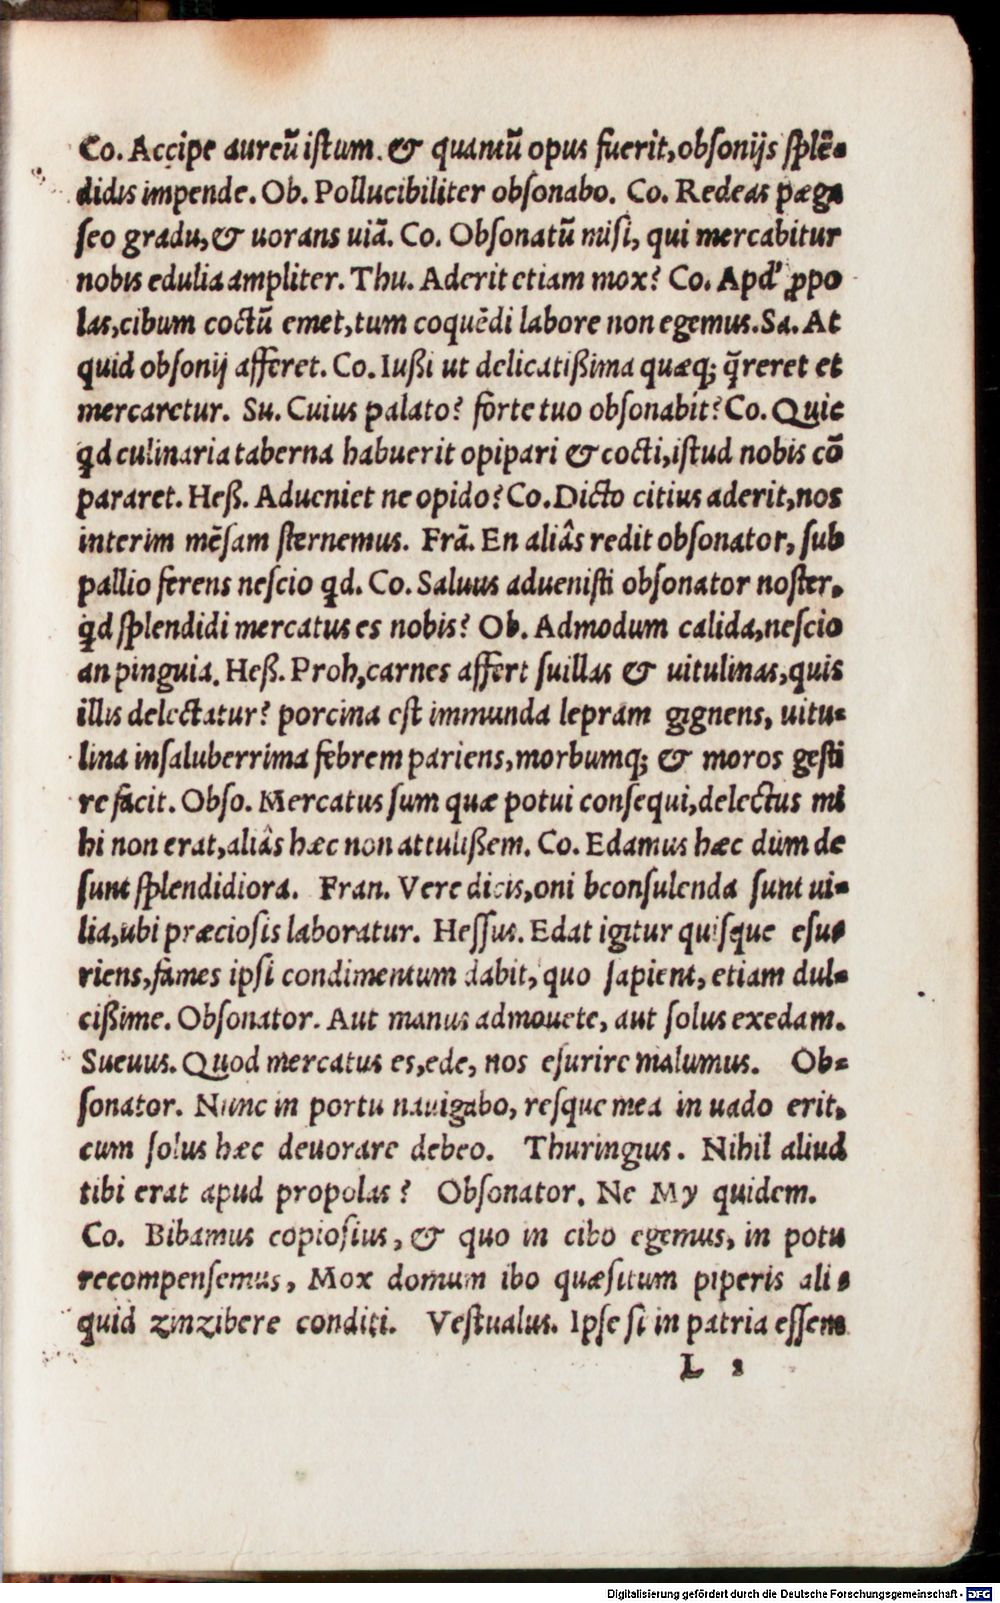 Co. Accipe aureū istum. & quantū opus fuerit, obsonijs splē-
didis impende. Ob. Pollucibiliter obsonabo. Co. Redeas pæga
seo gradu, & uorans uiā. Co. Obsonatū misi, qui mercabitur
nobis edulia ampliter. Thu. Aderit etiam mox? Co. Apd' ꝓpo
las, cibum coctū emet, tum coquēdi labore non egemus. Sa. At
quid obsonij afferet. Co. Iußi ut delicatißima quæq; q̃reret et
mercaretur. Su. Cuius palato? forte tuo obsonabit? Co. Quic
qd culinaria taberna habuerit opipari & cocti, istud nobis cō
pararet. Heß. Adueniet ne opido? Co. Dicto citius aderit, nos
interim mēsam sternemus. Frā. En aliâs redit obsonator, sub
pallio ferens nescio qd. Co. Saluus aduenisti obsonator noster,
qd splendidi mercatus es nobis? Ob. Admodum calida, nescio
an pinguia. Heß. Proh, carnes affert suillas & uitulinas, quis
illis delectatur? porcina est immunda lepram gignens, uitu-
lina insaluberrima febrem pariens, morbumq; & moros gesti
re facit. Obso. Mercatus sum quæ potui consequi, delectus mi
hi non erat, aliâs hæc non attulißem. Co. Edamus hæc dum de
sunt splendidiora. Fran. Vere dicis, oni bconsulenda sunt ui-
lia, ubi præciosis laboratur. Hessus. Edat igitur quisque esu-
riens, fames ipsi condimentum dabit, quo sapient, etiam dul-
cißime. Obsonator. Aut manus admouete, aut solus exedam.
Sueuus. Quod mercatus es, ede, nos esurire malumus. Ob-
sonator. Nunc in portu nauigabo, resque mea in uado erit,
cum solus hæc deuorare debeo. Thuringius. Nihil aliud
tibi erat apud propolas? Obsonator. Ne My quidem.
Co. Bibamus copiosius, & quo in cibo egemus, in potu
recompensemus, Mox domum ibo quæsitum piperis ali-
quid zinzibere conditi. Vestualus. Ipse si in patria essem
L 2
Digitalisierung gefördert durch die Deutsche Forschungsgemeinschaft - DFG